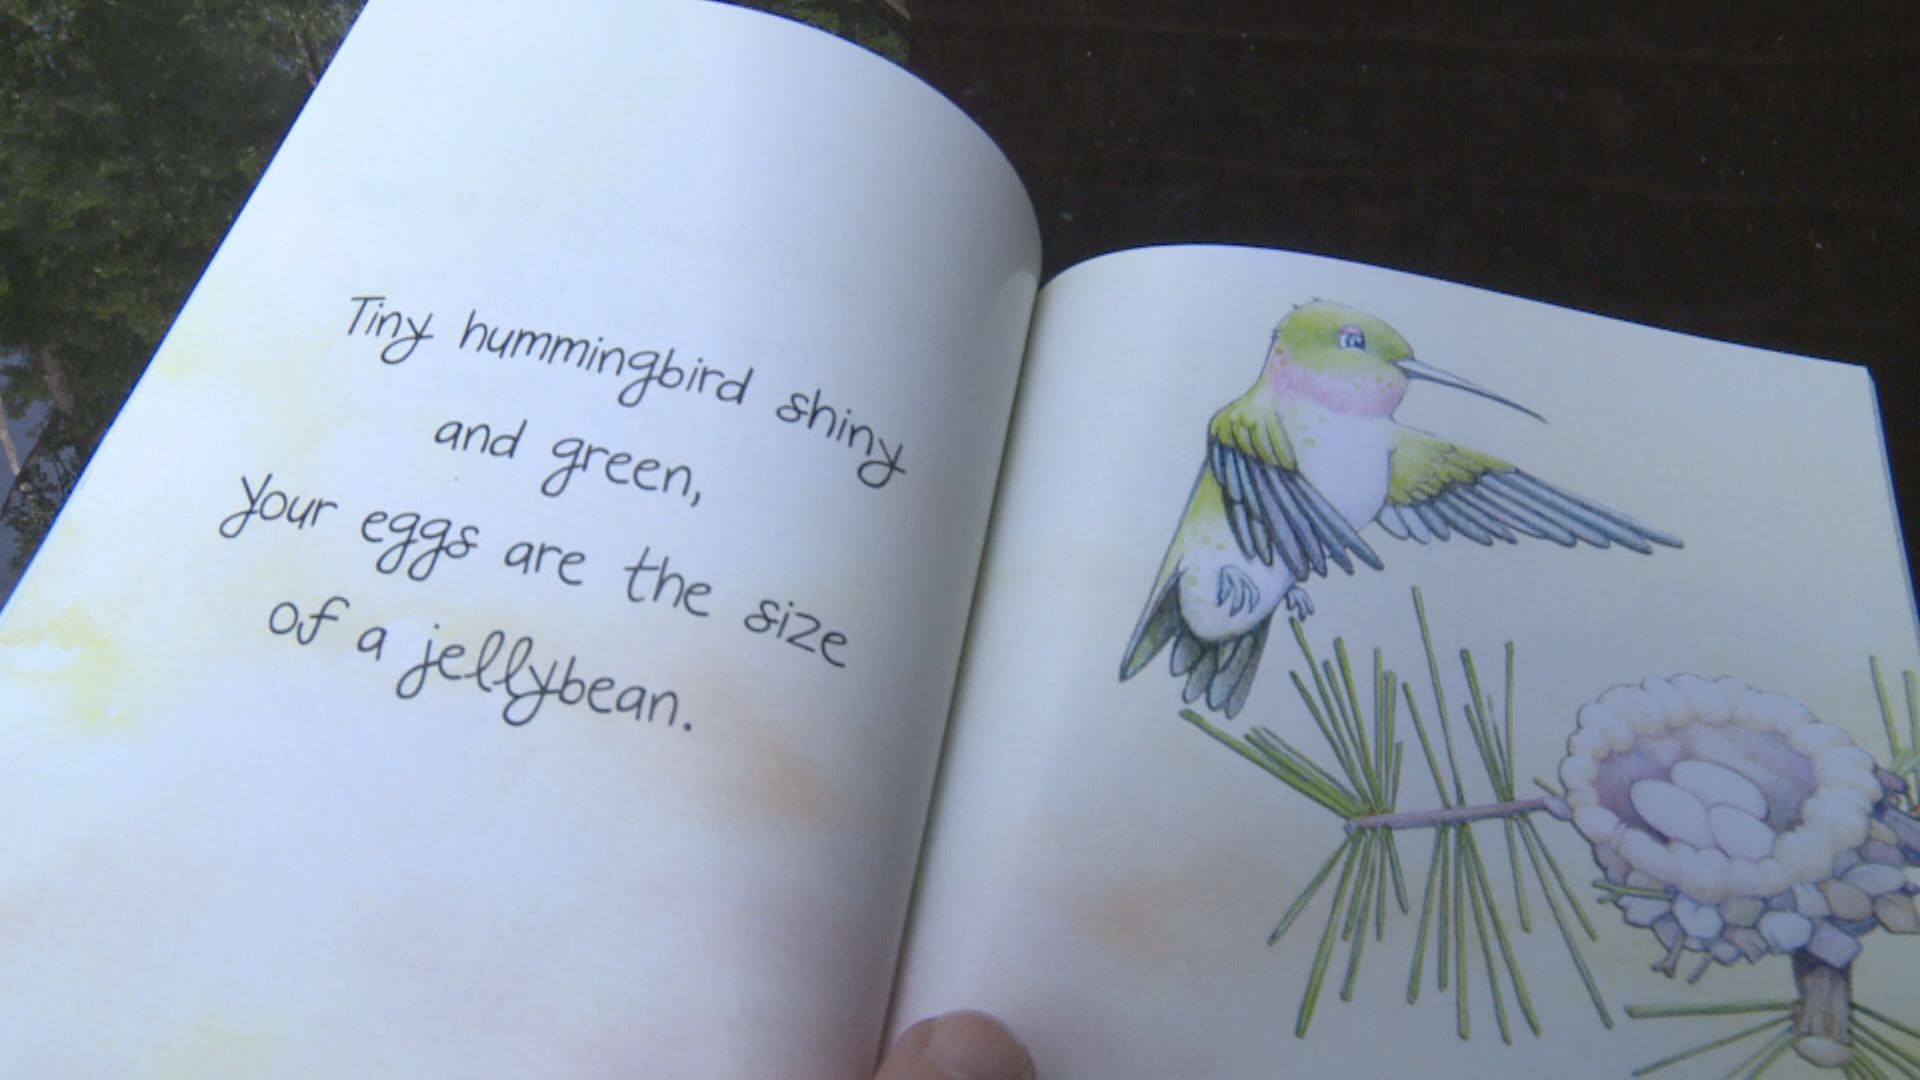 Tiny hummingbird shiny
and green,
your eggs are the size
of a jellybean.